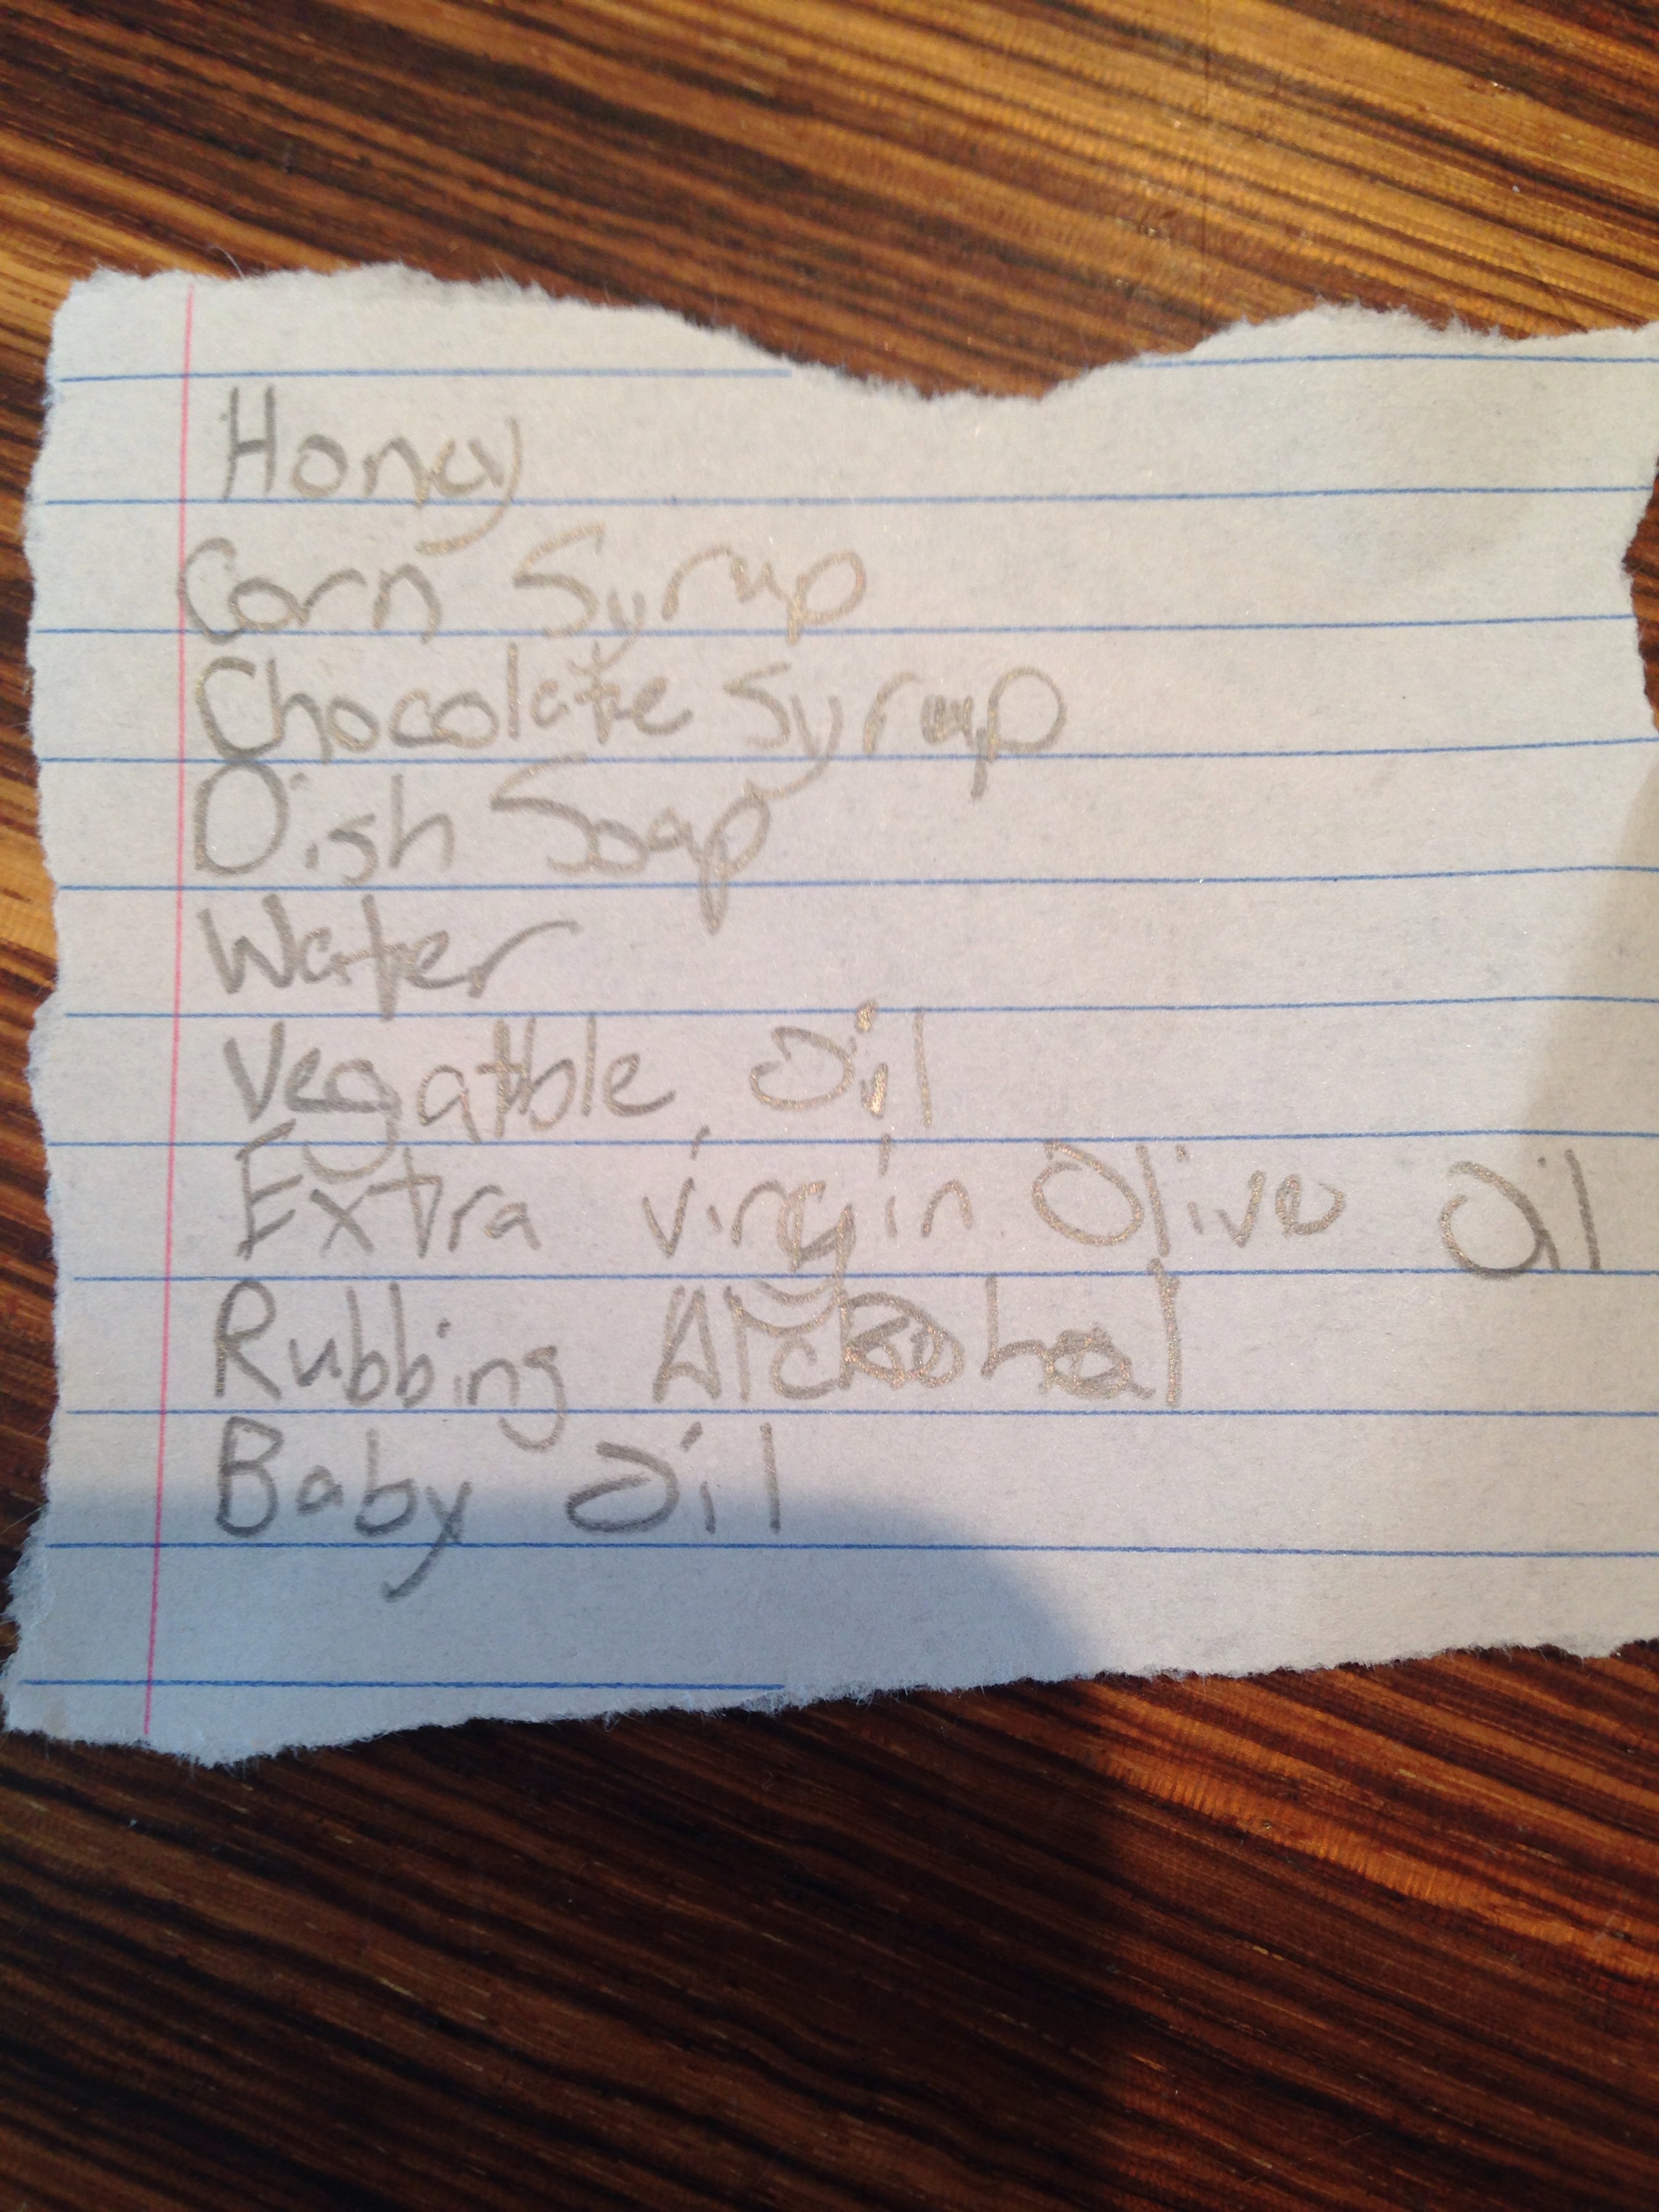 Honey
Corn Syrup
Chocolate Syrup
Dish Soap
Water
Vegatble Oil
Extra virgin Olive Oil
Rubbing Alcohol
Baby Oil